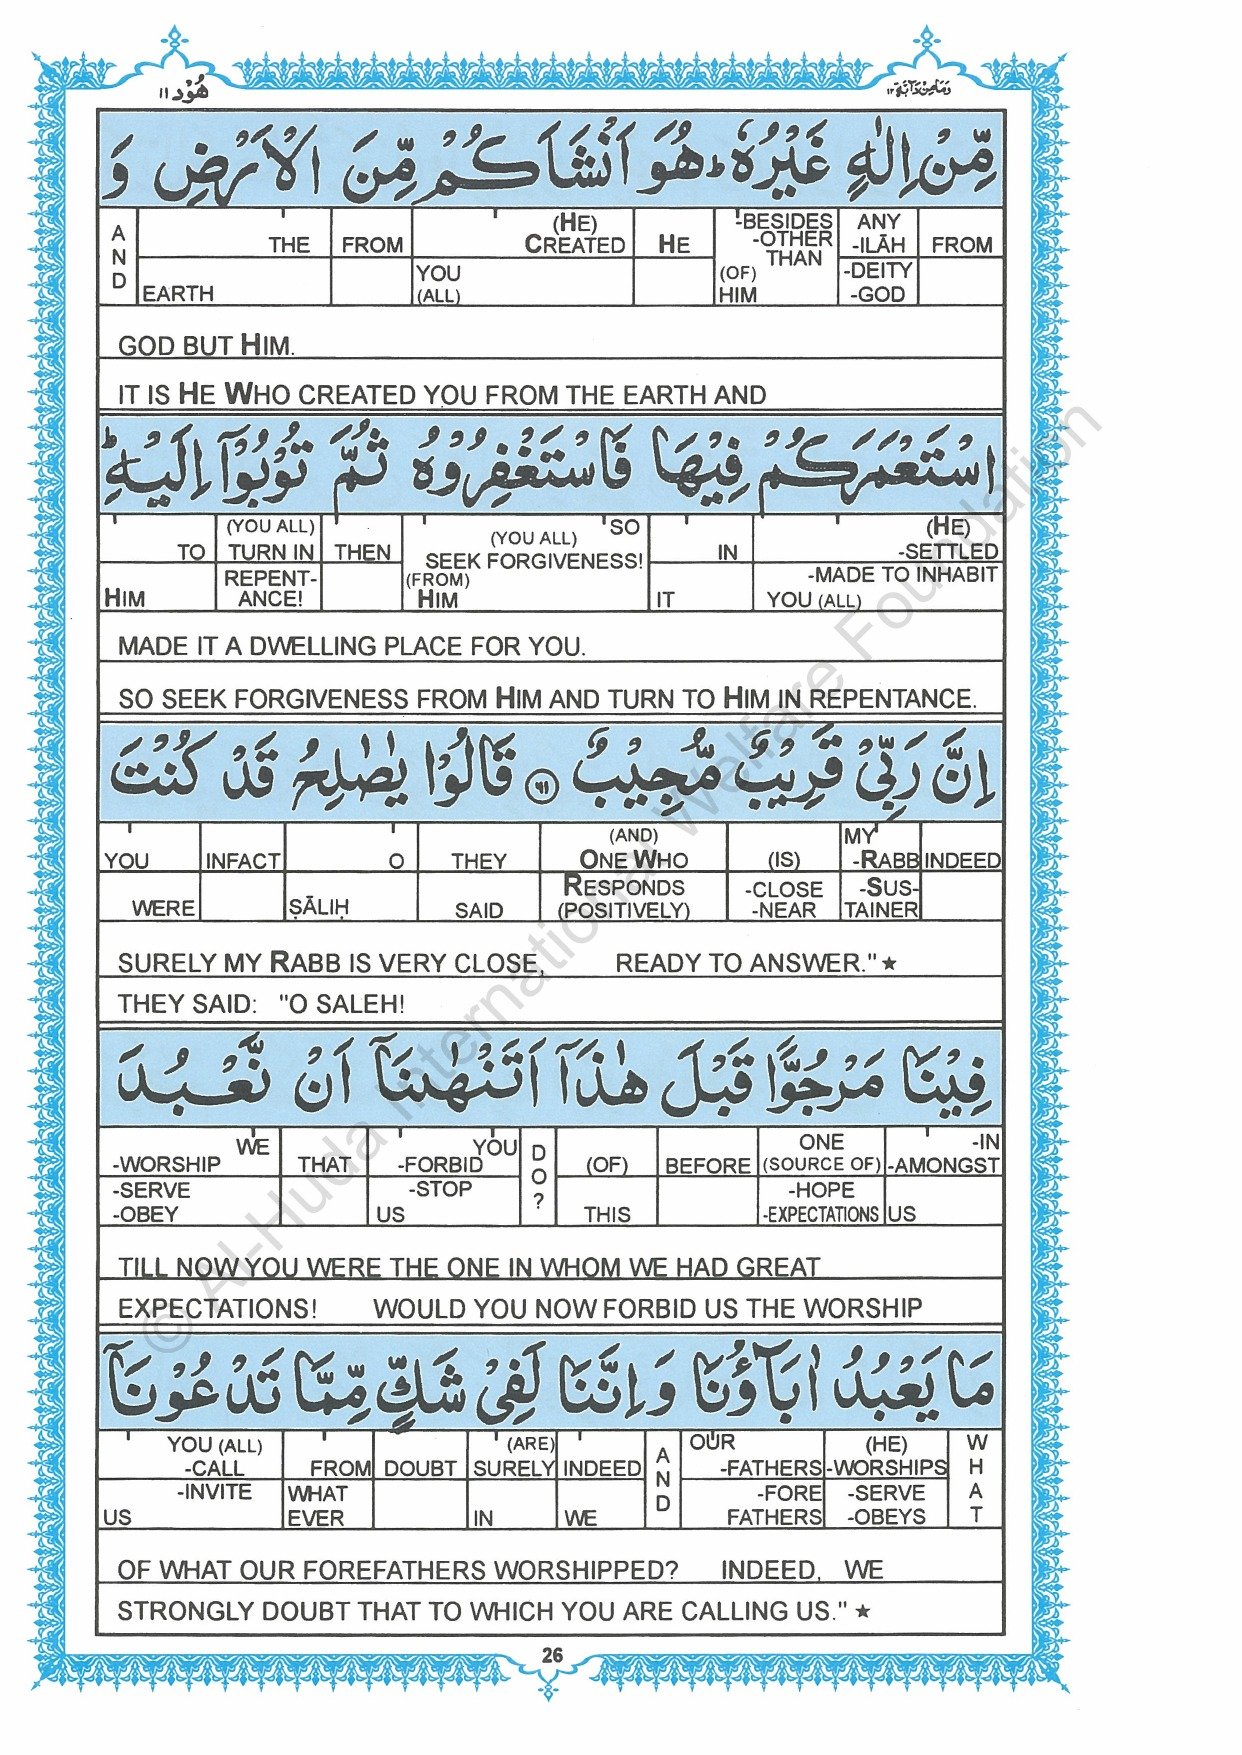 وما من دآبة ١٢
هُوْد ١١
مِّنْ اِلٰهٍ غَيْرُهٗ ؕ هُوَ اَنْشَاَكُمْ مِّنَ الْاَرْضِ وَ
FROM ANY -ILĀH -DEITY -GOD -BESIDES -OTHER THAN (OF) HIM HE (HE) CREATED YOU (ALL) FROM THE EARTH AND
GOD BUT HIM.
IT IS HE WHO CREATED YOU FROM THE EARTH AND
اسْتَعْمَرَكُمْ فِيْهَا فَاسْتَغْفِرُوْهُ ثُمَّ تُوْبُوْۤا اِلَيْهِ ؕ
(HE) -SETTLED -MADE TO INHABIT YOU (ALL) IN IT SO (YOU ALL) SEEK FORGIVENESS! (FROM) HIM THEN (YOU ALL) TURN IN REPENT-ANCE! TO HIM
MADE IT A DWELLING PLACE FOR YOU.
SO SEEK FORGIVENESS FROM HIM AND TURN TO HIM IN REPENTANCE.
اِنَّ رَبِّيْ قَرِيْبٌ مُّجِيْبٌ ٦١ قَالُوْا يٰصٰلِحُ قَدْ كُنْتَ
INDEED MY -RABB -SUS-TAINER (IS) -CLOSE -NEAR (AND) ONE WHO RESPONDS (POSITIVELY) THEY SAID O ṢĀLIḤ INFACT YOU WERE
SURELY MY RABB IS VERY CLOSE, READY TO ANSWER." ★
THEY SAID: "O SALEH!
فِيْنَا مَرْجُوًّا قَبْلَ هٰذَاۤ اَتَنْهٰىنَاۤ اَنْ نَّعْبُدَ
-IN -AMONGST US ONE (SOURCE OF) -HOPE -EXPECTATIONS BEFORE (OF) THIS DO? YOU -FORBID -STOP US THAT WE -WORSHIP -SERVE -OBEY
TILL NOW YOU WERE THE ONE IN WHOM WE HAD GREAT
EXPECTATIONS! WOULD YOU NOW FORBID US THE WORSHIP
مَا يَعْبُدُ اٰبَآؤُنَا وَ اِنَّنَا لَفِيْ شَكٍّ مِّمَّا تَدْعُوْنَاۤ
WHAT (HE) -WORSHIPS -SERVE -OBEYS OUR -FATHERS -FORE FATHERS AND INDEED WE (ARE) SURELY IN DOUBT FROM WHAT EVER YOU (ALL) -CALL -INVITE US
OF WHAT OUR FOREFATHERS WORSHIPPED? INDEED, WE
STRONGLY DOUBT THAT TO WHICH YOU ARE CALLING US." ★
26
© Al-Huda International Welfare Foundation